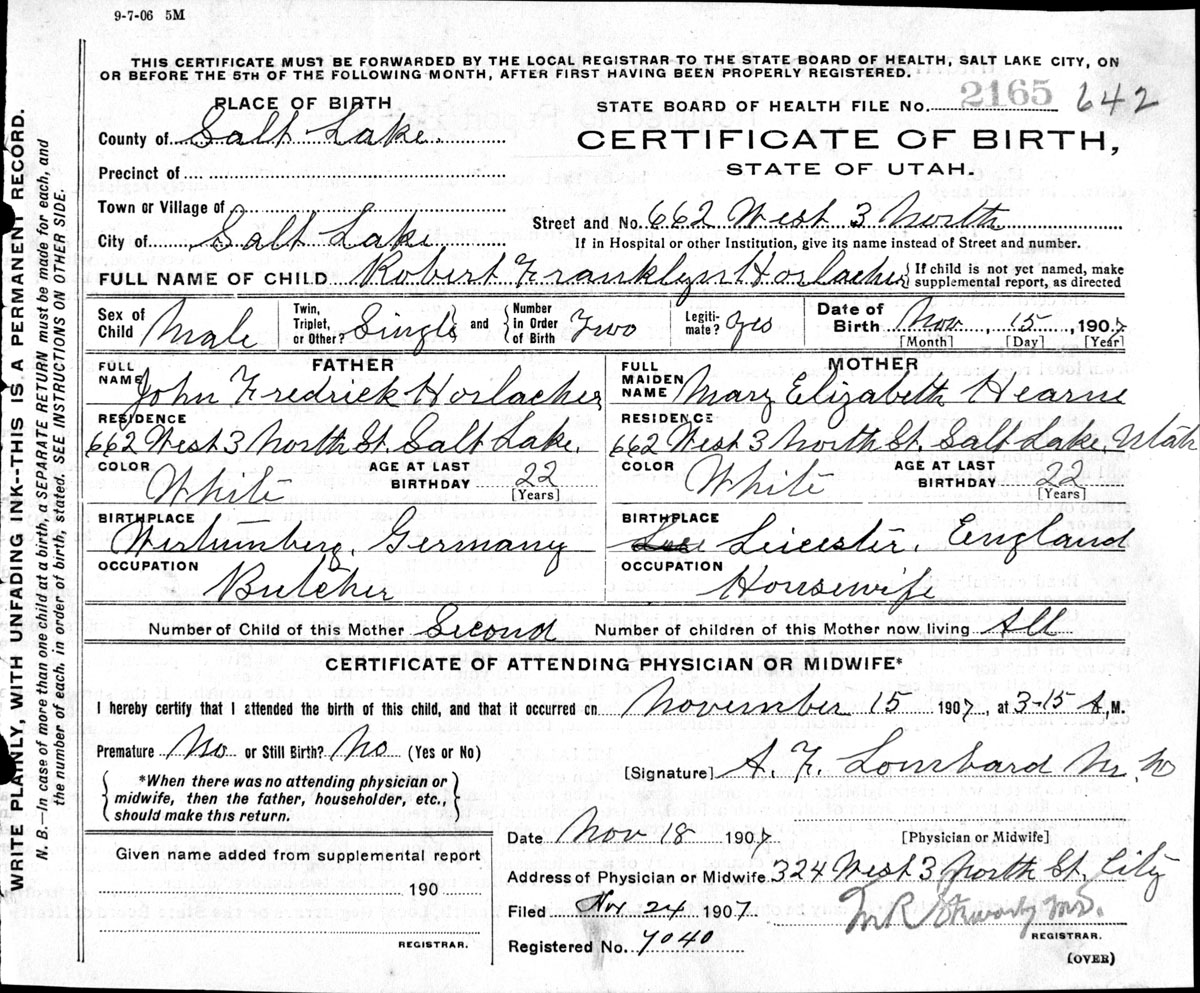 9-7-06 5M
THIS CERTIFICATE MUST BE FORWARDED BY THE LOCAL REGISTRAR TO THE STATE BOARD OF HEALTH, SALT LAKE CITY, ON
OR BEFORE THE 5TH OF THE FOLLOWING MONTH, AFTER FIRST HAVING BEEN PROPERLY REGISTERED.
WRITE PLAINLY, WITH UNFADING INK--THIS IS A PERMANENT RECORD.
N. B.—In case of more than one child at a birth, a SEPARATE RETURN must be made for each, and
the number of each, in order of birth, stated. SEE INSTRUCTIONS ON OTHER SIDE.
PLACE OF BIRTH
STATE BOARD OF HEALTH FILE No. 2165 642
County of Salt Lake.
CERTIFICATE OF BIRTH,
STATE OF UTAH.
Precinct of
Town or Village of
Street and No. 662 West 3 North
City of Salt Lake.
If in Hospital or other Institution, give its name instead of Street and number.
FULL NAME OF CHILD Robert Franklyn Horlacher { If child is not yet named, make
supplemental report, as directed
Sex of Child Male
Twin, Triplet, or Other? Single and { Number in Order of Birth Two
Legitimate? Yes
Date of Birth Nov, 15, 1907
[Month] [Day] [Year]
FATHER
FULL NAME John Fredrick Horlacher
MOTHER
FULL MAIDEN NAME Mary Elizabeth Hearne
RESIDENCE
662 West 3 North St. Salt Lake.
RESIDENCE
662 West 3 North St. Salt Lake, Utah
COLOR White AGE AT LAST BIRTHDAY 22 [Years]
COLOR White AGE AT LAST BIRTHDAY 22 [Years]
BIRTHPLACE
Wertumberg, Germany
BIRTHPLACE
Leicester, England
OCCUPATION
Butcher
OCCUPATION
Housewife
Number of Child of this Mother Second Number of children of this Mother now living All
CERTIFICATE OF ATTENDING PHYSICIAN OR MIDWIFE*
I hereby certify that I attended the birth of this child, and that it occurred on November 15 1907, at 3-15 A. M.
Premature No or Still Birth? No (Yes or No)
[Signature] A. F. Lombard M. D
{ *When there was no attending physician or
midwife, then the father, householder, etc.,
should make this return. }
Date Nov 18 1907 [Physician or Midwife]
Given name added from supplemental report
190
REGISTRAR.
Address of Physician or Midwife 324 West 3 North St. City
Filed Nov 24 1907
REGISTRAR.
Registered No. 7040
(OVER)